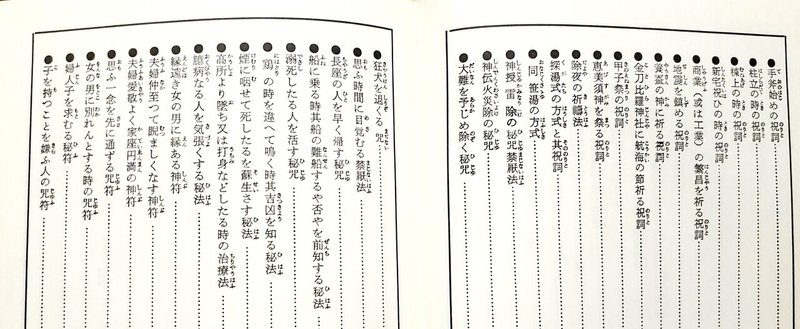 ●手斧始めの祝詞
●柱立の時の祝詞
●棟上の時の祝詞
●新宅祝ひの時の祝詞
●商業(或は工業)の繁昌を祈る祝詞
●地震を鎮める祝詞
●養蚕の神に祈る祝詞
●金刀比羅神社に航海の節祈る祝詞
●甲子祭の祝詞
●恵美須神を祭る祝詞
●除夜の祈禱法
●探湯式の方式と其祝詞
●同笹湯の方式
●神授雷除の秘咒禁厭法
●神伝火災除の秘咒
●大難を予じめ除く秘咒
●狂犬を退くる咒
●思ふ時間に目覚むる禁厭
●長座の人を早く帰す秘咒
●船に乗る時其船の難船するや否やを前知する秘法
●溺死したる人を活す秘咒
●鶏の時を違へて鳴く時其吉凶を知る秘法
●煙に咽せて死したるを蘇生さす秘法
●高所より墜ち又は打身などしたる時の治療法
●臆病なる人を気張くする秘法
●縁遠き女の男に縁ある神符
●夫婦仲至つて睨ましくなす神符
●夫婦愛敬よく家座円満の神符
●思ふ一念を先に通ずる秘符
●女の男に別れんとする時の咒符
●婦人子を求むる秘符
●子を持つことを嫌ふ人の咒符